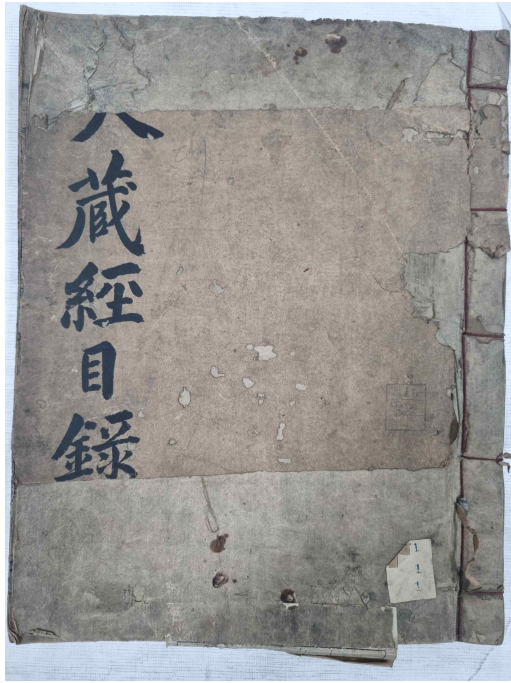 大蔵經目錄
1
1
1